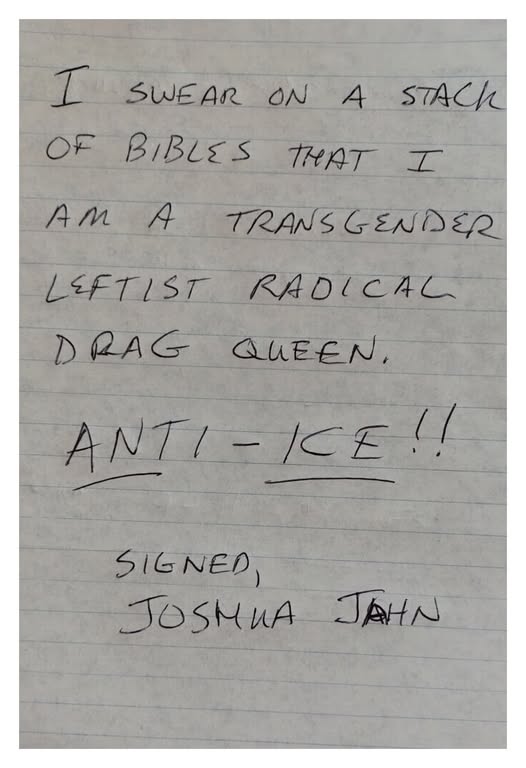 I SWEAR ON A STACK
OF BIBLES THAT I
AM A TRANSGENDER
LEFTIST RADICAL
DRAG QUEEN.
ANTI-ICE!!
SIGNED,
JOSHUA JAHN